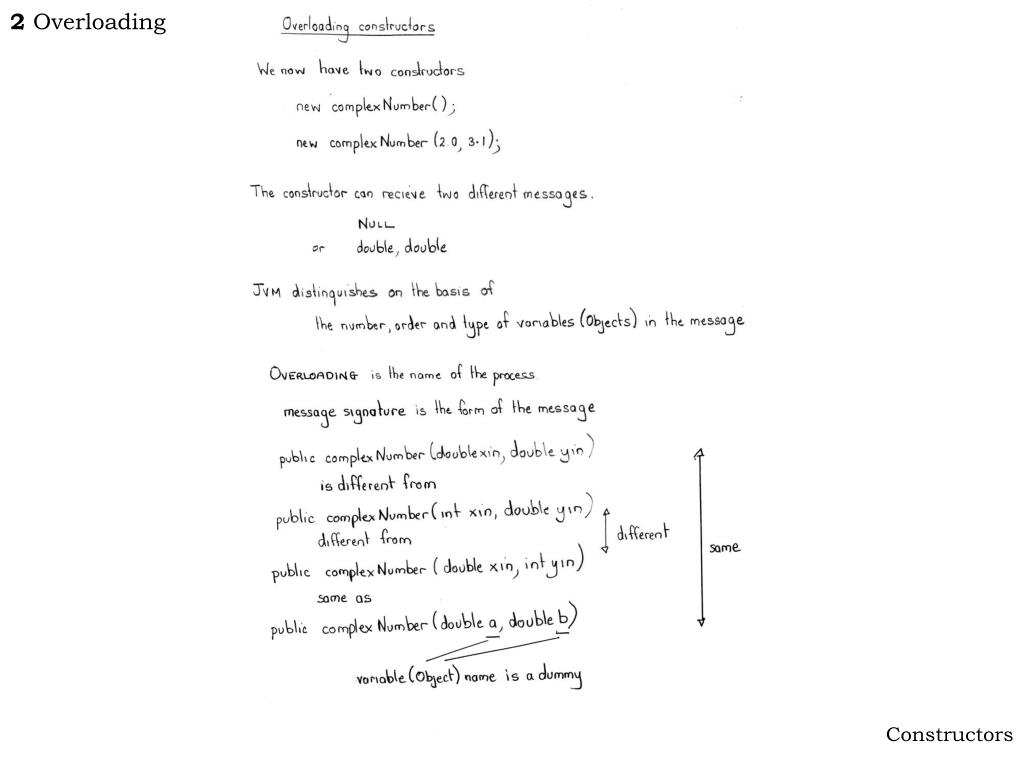 2 Overloading
Overloading constructors
We now have two constructors
new complexNumber();
new complexNumber (2.0, 3.1);
The constructor can recieve two different messages.
NULL
or double, double
JVM distinguishes on the basis of
the number, order and type of variables (Objects) in the message
OVERLOADING is the name of the process.
message signature is the form of the message
public complexNumber (double xin, double yin)
is different from
public complexNumber (int xin, double yin)
different from
different
public complexNumber (double xin, int yin)
same
same as
public complexNumber (double a, double b)
variable (Object) name is a dummy
Constructors